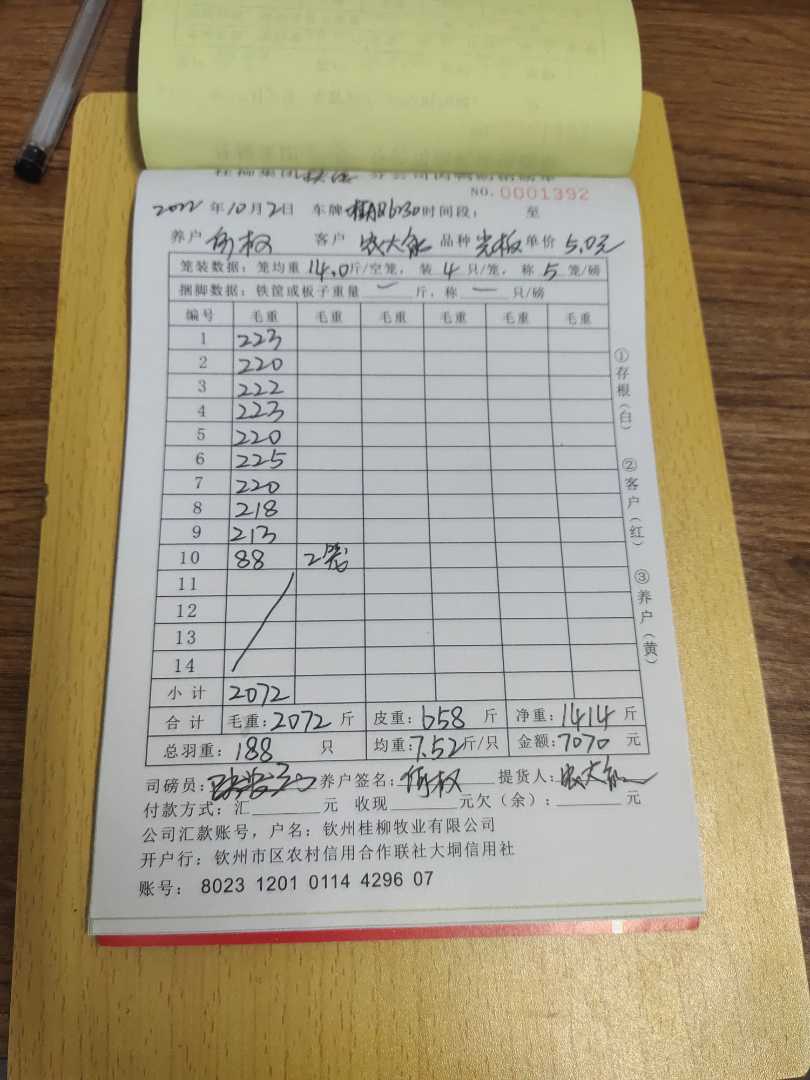 NO. 0001392
2022 年 10 月 2 日 车牌 桂A 6730 时间段： 至
养户 何权 客户 农大 品种 光板 单价 5.0元
笼装数据：笼均重 14.0 斤/空笼，装 4 只/笼，称 5 笼/磅
捆脚数据：铁筐或板子重量 — 斤，称 — 只/磅
编号 毛重 毛重 毛重 毛重 毛重 毛重
1 223
2 220
3 222
4 223
5 220
6 225
7 220
8 218
9 213
10 88 2笼
11
12
13
14
小计 2072
合计 毛重：2072 斤 皮重：658 斤 净重：1414 斤
总羽重：188 只 均重：7.52 斤/只 金额：7070 元
司磅员： 养户签名：何权 提货人：农大
付款方式：汇 元 收现 元欠（余）： 元
公司汇款账号，户名：钦州桂柳牧业有限公司
开户行：钦州市区农村信用合作联社大垌信用社
账号： 8023 1201 0114 4296 07
①存根（白）
②客户（红）
③养户（黄）